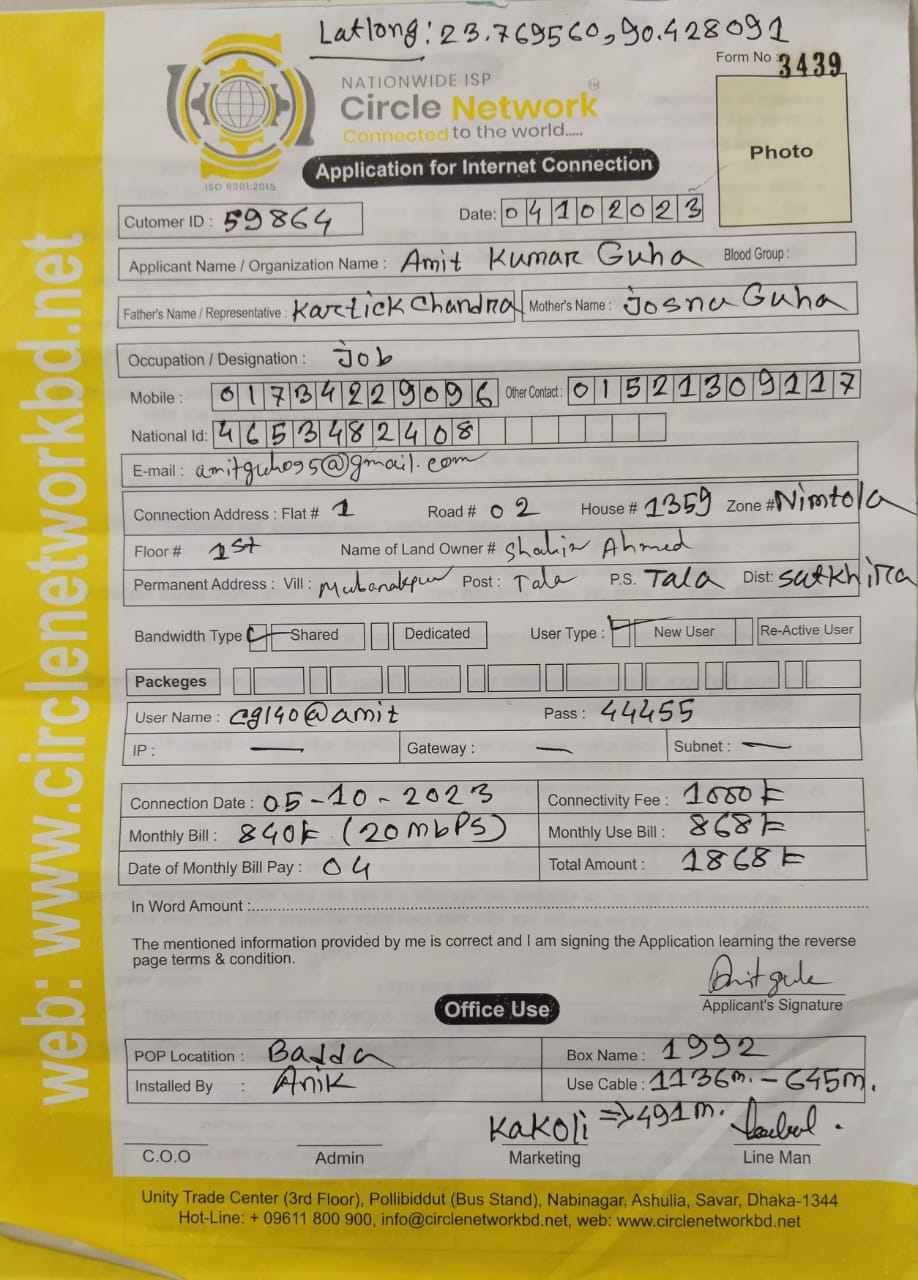 Latlong: 23.769560, 90.428091
Form No : 3439
NATIONWIDE ISP
Circle Network
Connected to the world.....
ISO 9001:2015
Application for Internet Connection
Photo
Cutomer ID : 59864
Date: 04102023
Applicant Name / Organization Name : Amit Kumar Guha Blood Group :
Father's Name / Representative : Kartick Chandra Mother's Name : Josna Guha
Occupation / Designation : Job
Mobile : 01734229096 Other Contact : 01521309117
National Id: 4653482408
E-mail : amitguha95@gmail.com
Connection Address : Flat # 1 Road # 02 House # 1359 Zone # Nimtola
Floor # 1st Name of Land Owner # Shahin Ahmed
Permanent Address : Vill : Mubarakpur Post : Tala P.S. TALA Dist: Satkhira
Bandwidth Type Shared Dedicated User Type : New User Re-Active User
Packeges
User Name : cg140@amit Pass : 44455
IP : — Gateway : — Subnet : —
Connection Date : 05-10-2023 Connectivity Fee : 1000৳
Monthly Bill : 840৳ (20mbps) Monthly Use Bill : 868৳
Date of Monthly Bill Pay : 04 Total Amount : 1868৳
In Word Amount :
The mentioned information provided by me is correct and I am signing the Application learning the reverse
page terms & condition.
Amitguha
Applicant's Signature
Office Use
POP Locatition : Badda Box Name : 1992
Installed By : Anik Use Cable : 1136m. - 645m.
Kakoli => 491m.
C.O.O Admin Marketing Line Man
Unity Trade Center (3rd Floor), Pollibiddut (Bus Stand), Nabinagar, Ashulia, Savar, Dhaka-1344
Hot-Line: + 09611 800 900, info@circlenetworkbd.net, web: www.circlenetworkbd.net
web: www.circlenetworkbd.net